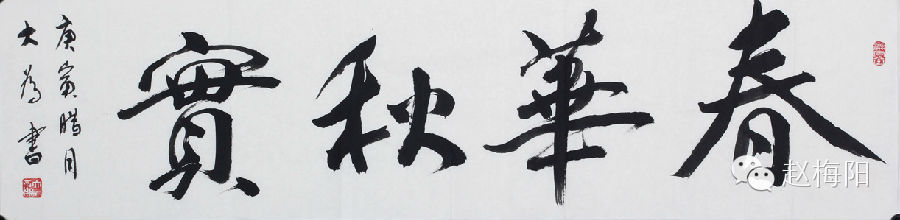 春華秋實
庚寅腊月
大為書
赵梅阳